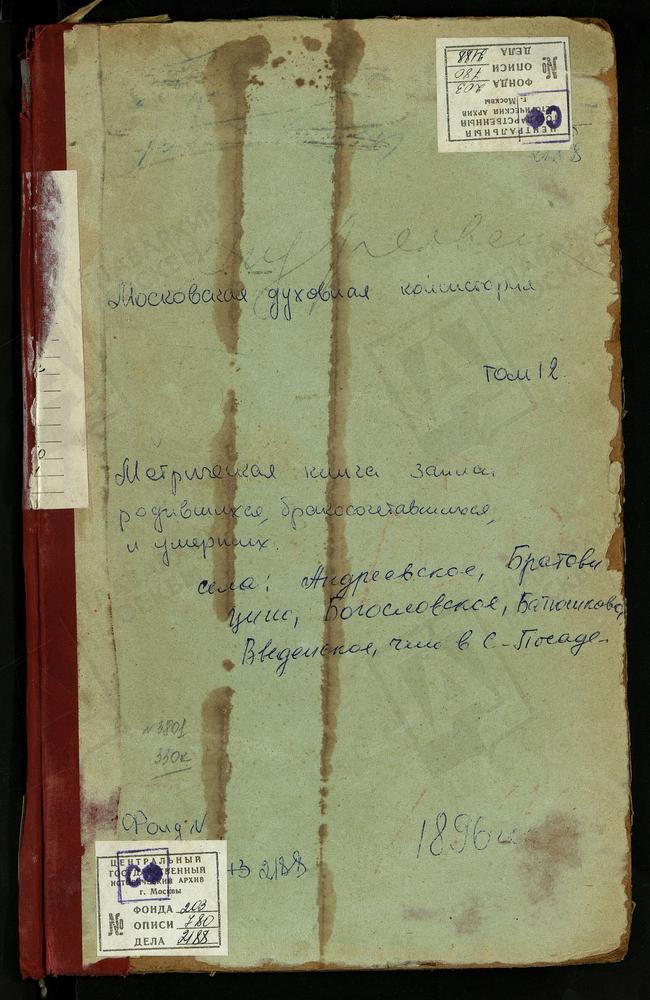 ЦЕНТРАЛЬНЫЙ
ГОСУДАРСТВЕННЫЙ
ИСТОРИЧЕСКИЙ АРХИВ
г. Москвы
№
ФОНДА 203
ОПИСИ 780
ДЕЛА 2188
Московская духовная консистория
том 12
Метрическая книга записи
родившихся, бракосочетавшихся,
и умерших.
села: Андреевское, Братови
щино, Богословское, Батюшково,
Введенское, что в С-Посаде-
N 3801
330к
Фонд N
1896
+3 2188
ЦЕНТРАЛЬНЫЙ
ГОСУДАРСТВЕННЫЙ
ИСТОРИЧЕСКИЙ АРХИВ
г. Москвы
№
ФОНДА 203
ОПИСИ 780
ДЕЛА 2188